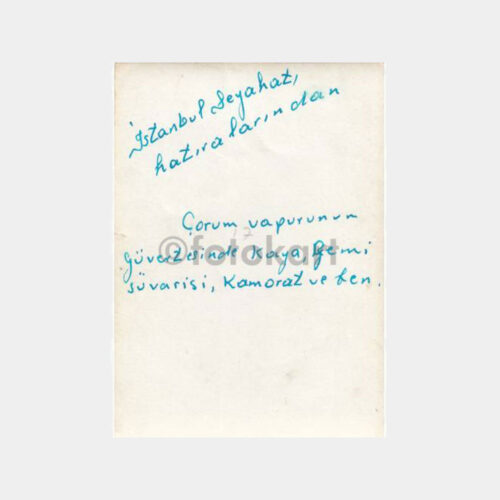 İstanbul Seyahatı,
hatıralarından
Çorum vapurunun
güvertesinde Kaya gemi
süvarisi, Kamorat ve ben.
©fotokart